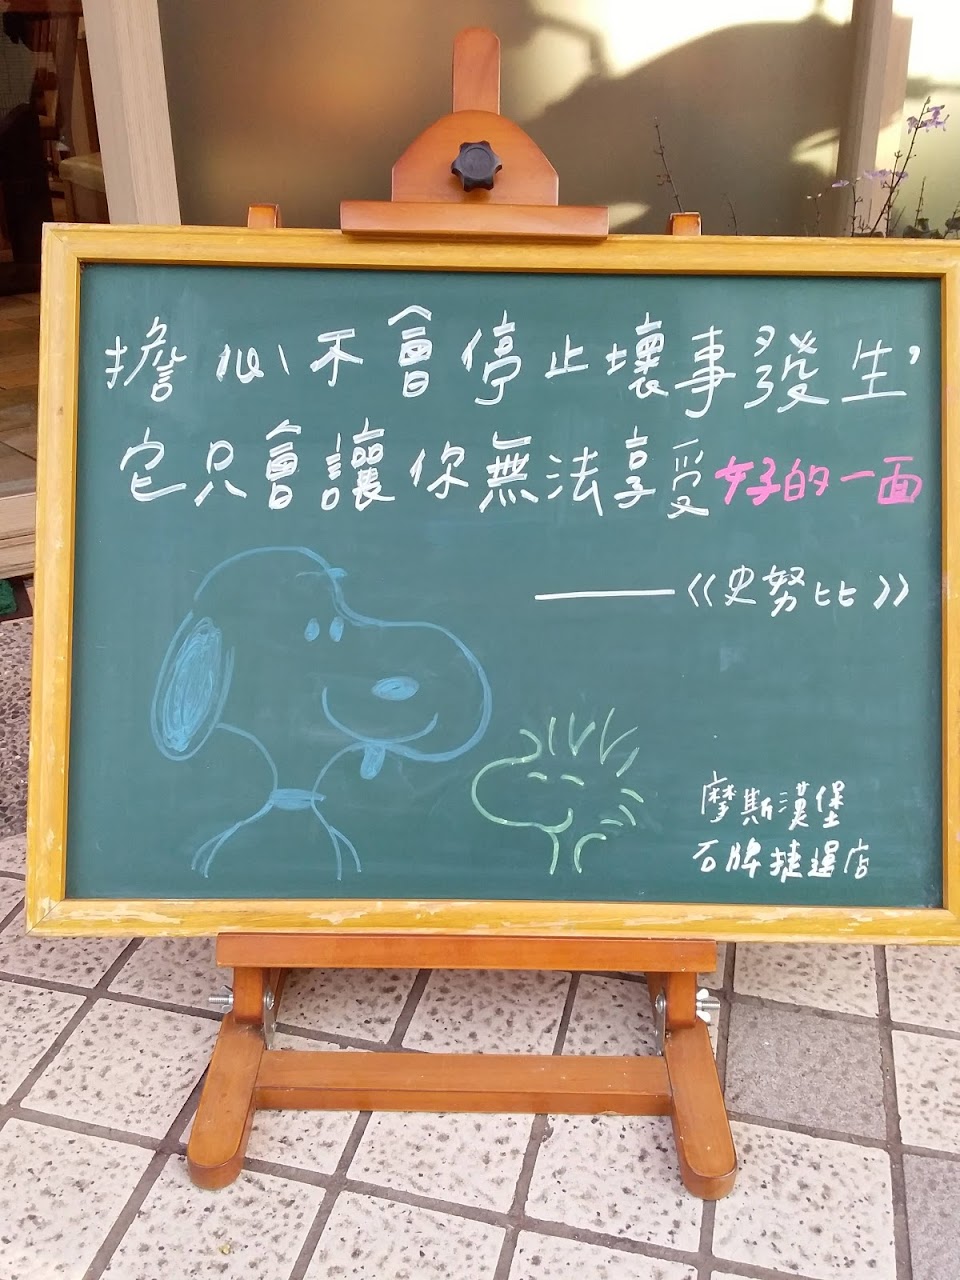 擔心不會停止壞事發生，
它只會讓你無法享受好的一面
——《史努比》
摩斯漢堡
石牌捷運店